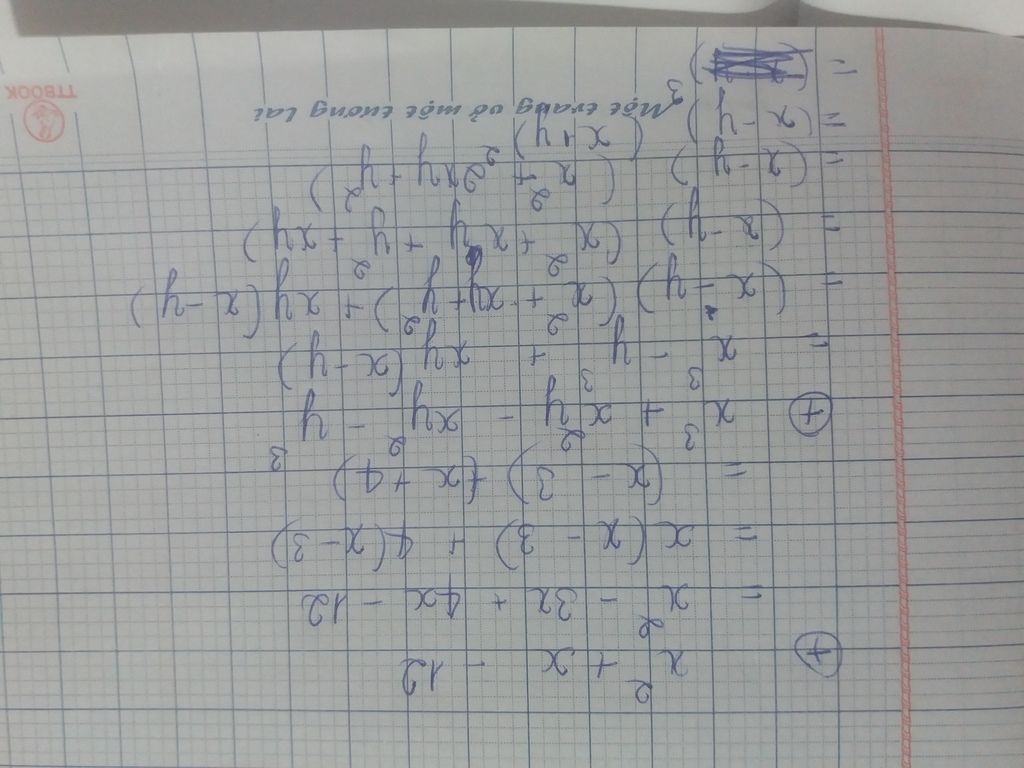 ⊕ x² + x - 12
= x² - 3x + 4x - 12
= x(x - 3) + 4(x - 3)
= (x - 3)(x + 4)
⊕ x³ + x²y - xy² - y³
= x³ - y³ + xy(x - y)
= (x - y)(x² + xy + y²) + xy(x - y)
= (x - y)(x² + xy + y² + xy)
= (x - y)(x² + 2xy + y²)
= (x - y)(x + y)²
Một trang vở một tương lai
TTBOOK